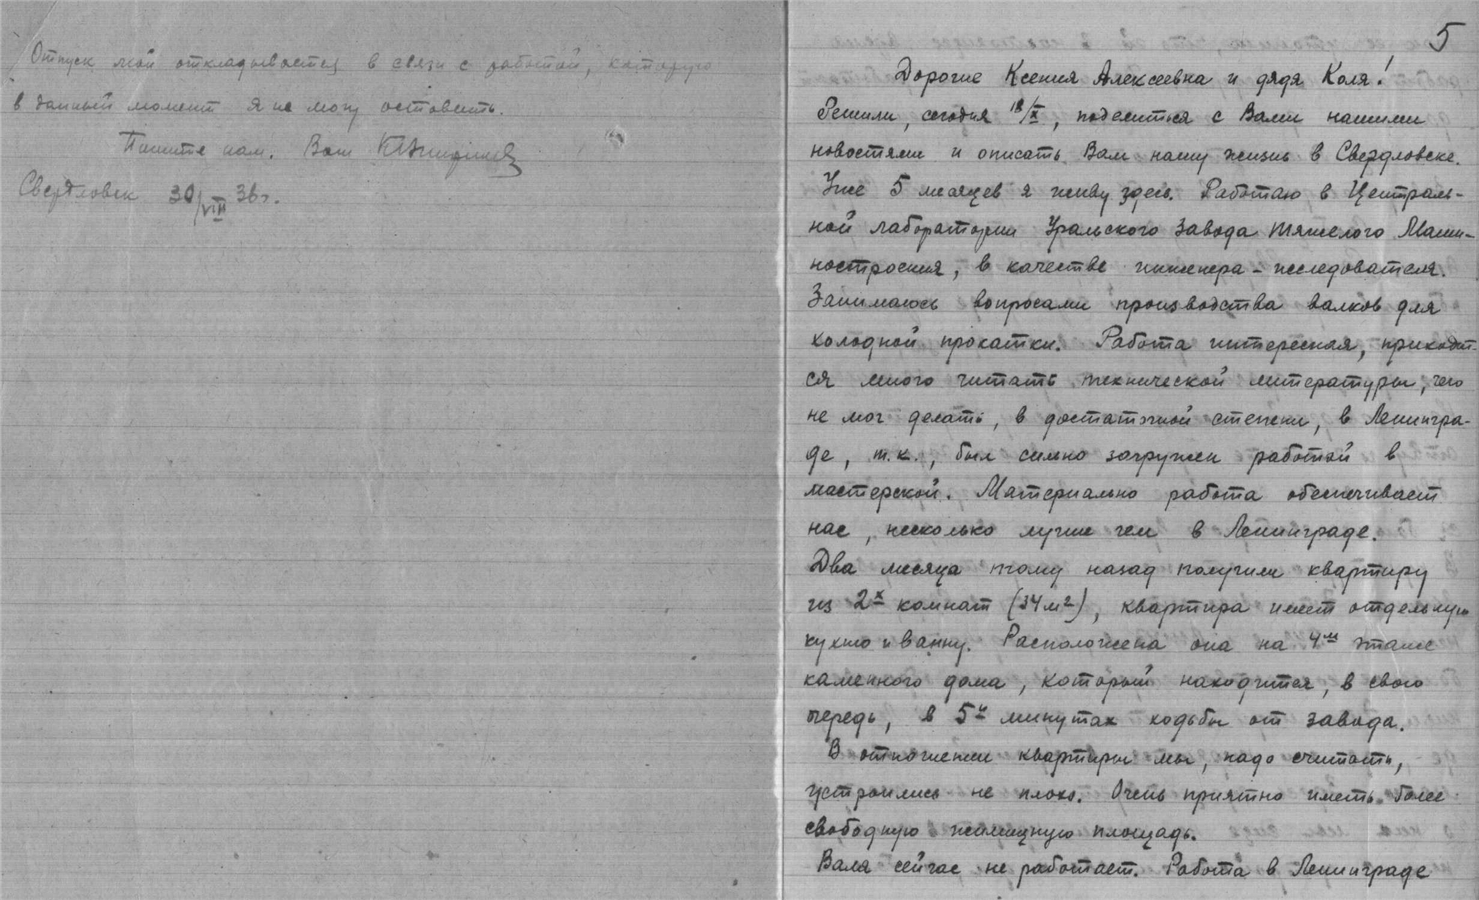 Отпуск мой откладывается в связи с работой, которую
в данный момент я не могу оставить.
Пишите нам. Ваш
Свердловск 30/VIII 36 г.
5
Дорогие Ксения Алексеевна и дядя Коля!
Решили, сегодня 18/X, поделиться с Вами нашими
новостями и описать Вам нашу жизнь в Свердловске.
Уже 5 месяцев я живу здесь. Работаю в Централь-
ной лаборатории Уральского Завода Тяжелого Маши-
ностроения, в качестве инженера-исследователя.
Занимаюсь вопросами производства валков для
холодной прокатки. Работа интересная, приходит-
ся много читать технической литературы, чего
не мог делать, в достаточной степени, в Ленингра-
де, т.к., был сильно загружен работой в
мастерской. Материально работа обеспечивает
нас, несколько лучше чем в Ленинграде.
Два месяца тому назад получили квартиру
из 2х комнат (34 м2), квартира имеет отдельную
кухню и ванну. Расположена она на 4м этаже
каменного дома, который находится, в свою
очередь, в 5и минутах ходьбы от завода.
В отношении квартиры мы, надо считать,
устроились не плохо. Очень приятно иметь более
свободную жилищную площадь.
Валя сейчас не работает. Работа в Ленинграде